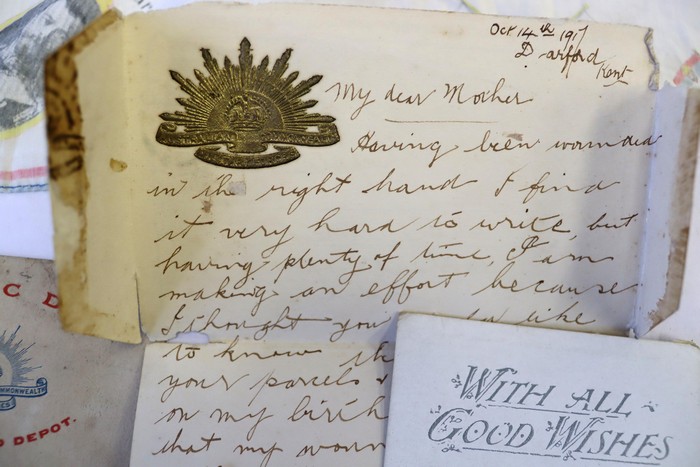 Oct 14th 1917
Darford
Kent
My dear Mother
Having been wounded
in the right hand I find
it very hard to write, but
having plenty of time, I am
making an effort because
I thought you like
to know
your parcels
on my birth
that my
WITH ALL
GOOD WISHES
C D
COMMONWEALTH
DEPOT.